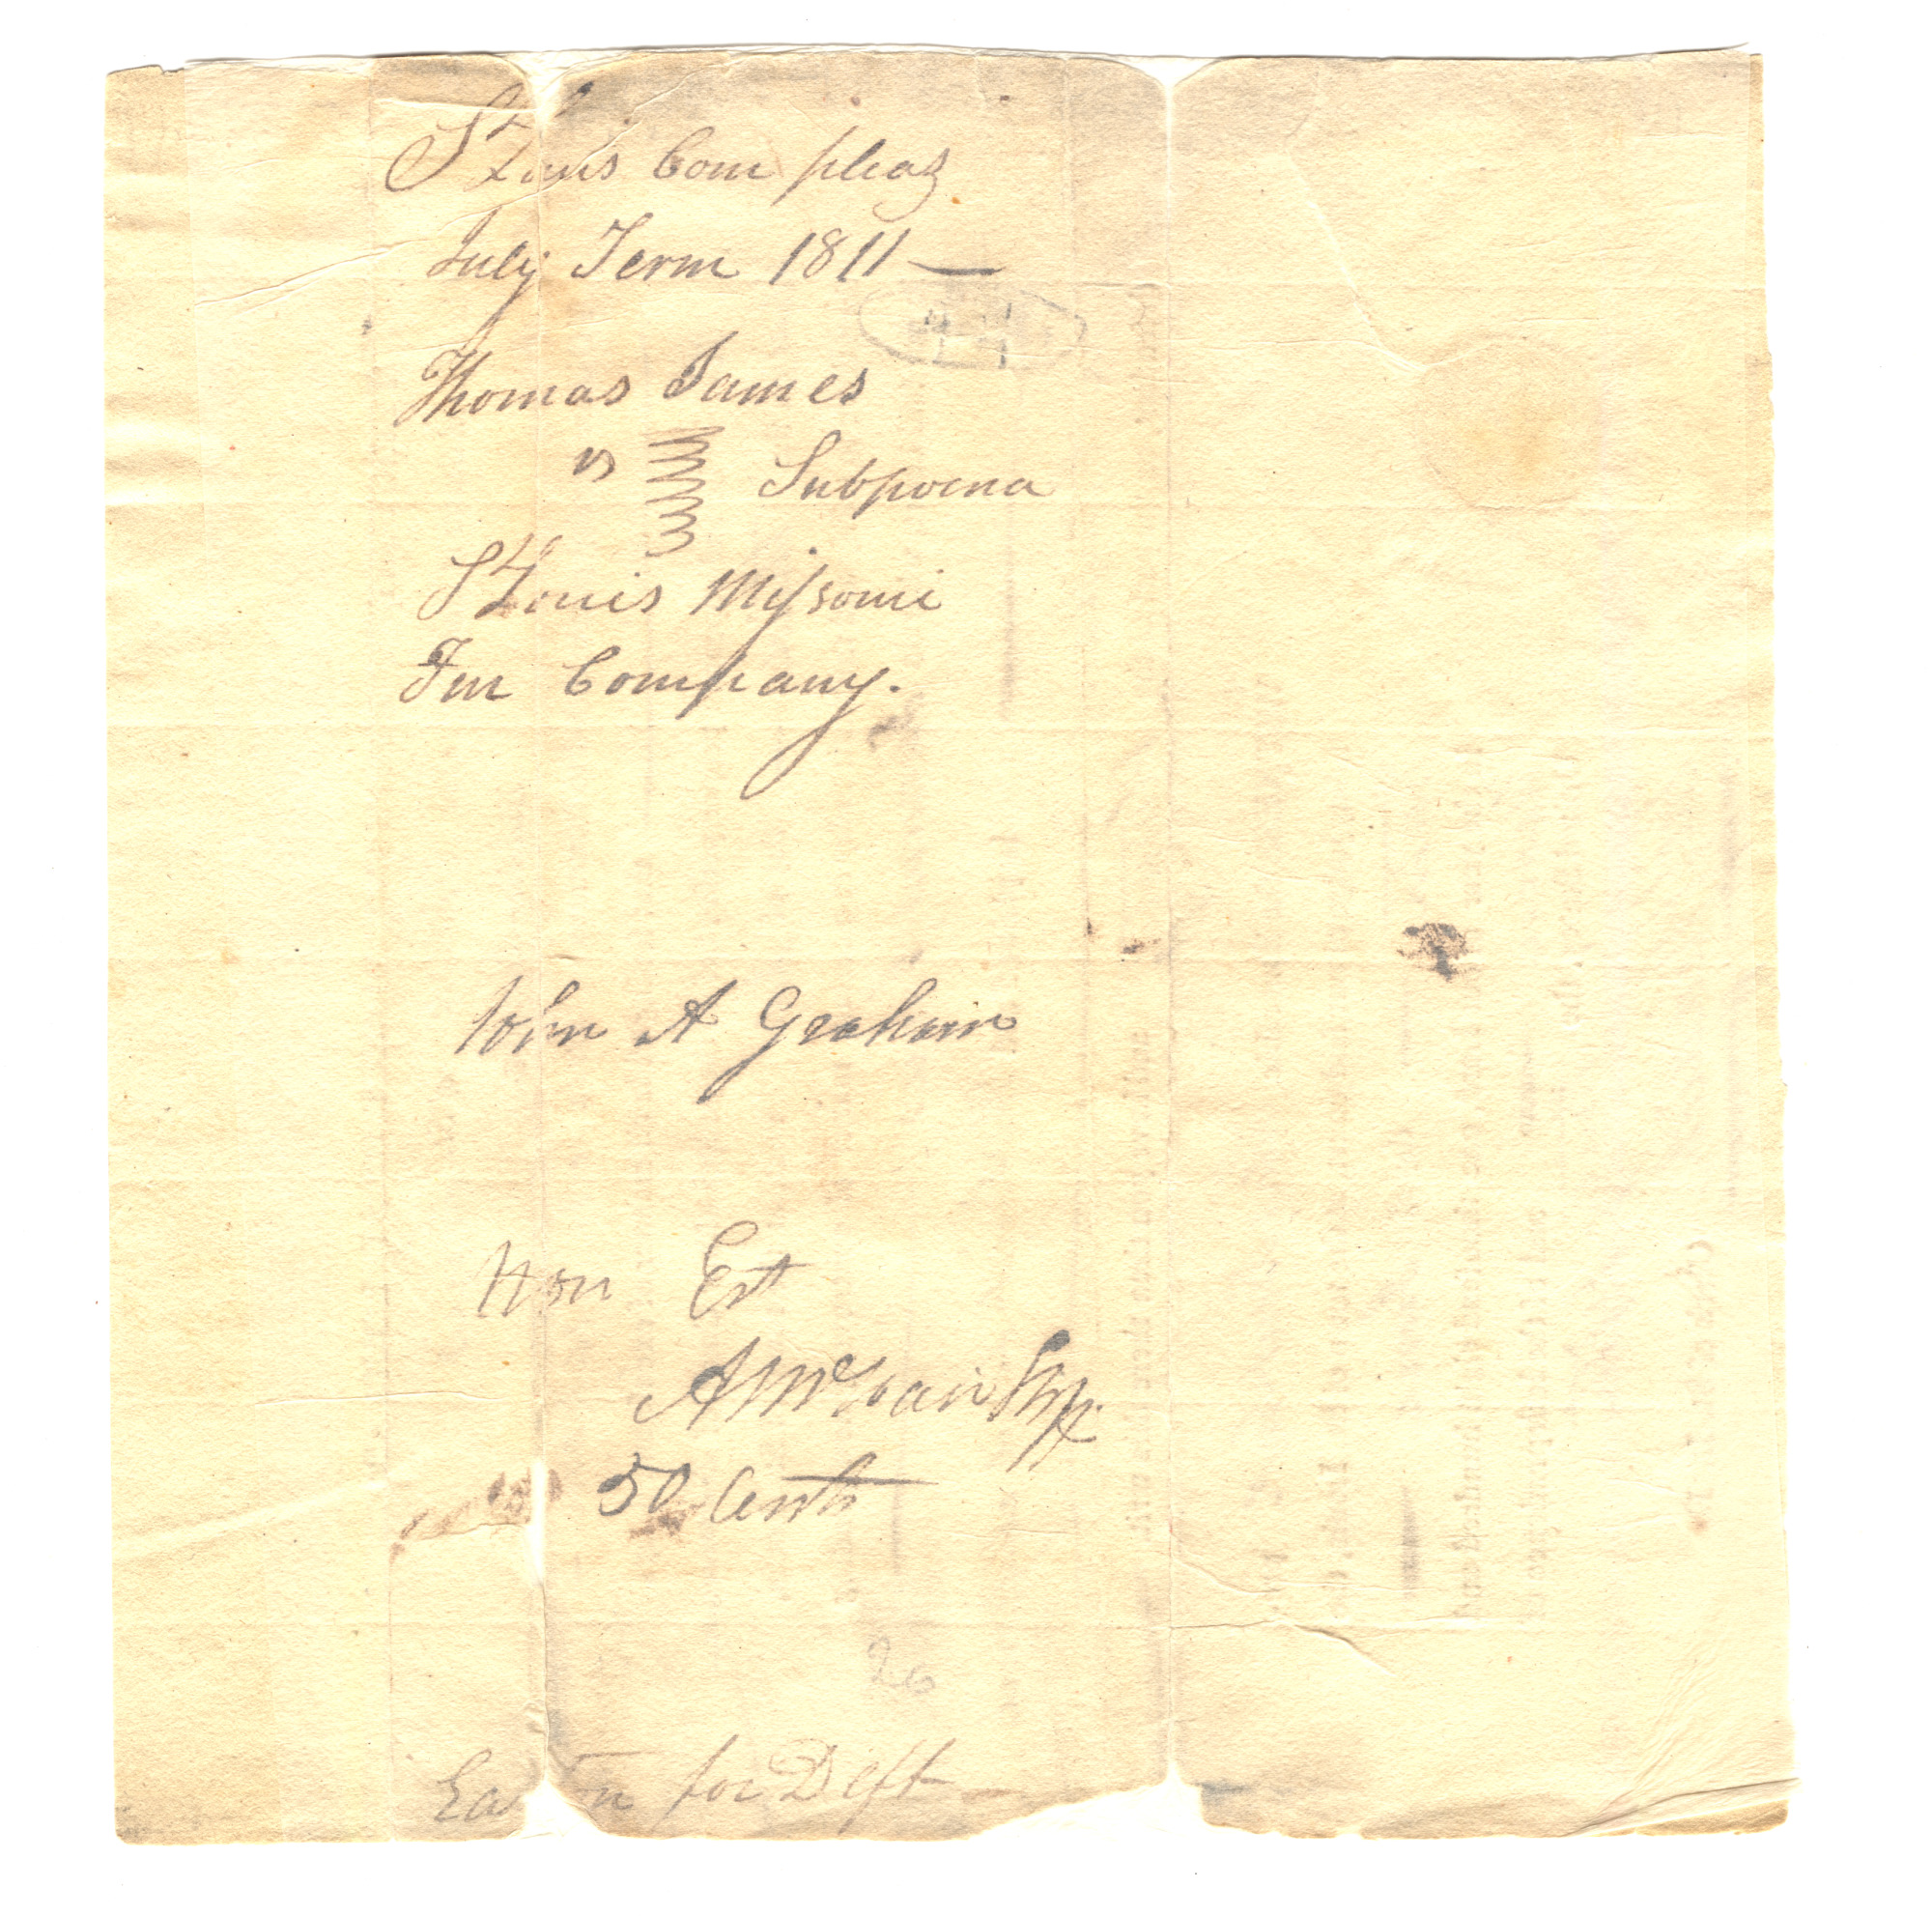 St Louis Com pleas
July Term 1811 —
Thomas James
vs Subpoena
St Louis Missouri
Fur Company.
John A Graham
Non Est
A McNair Shff.
50 Cents
20
Easton for Deft